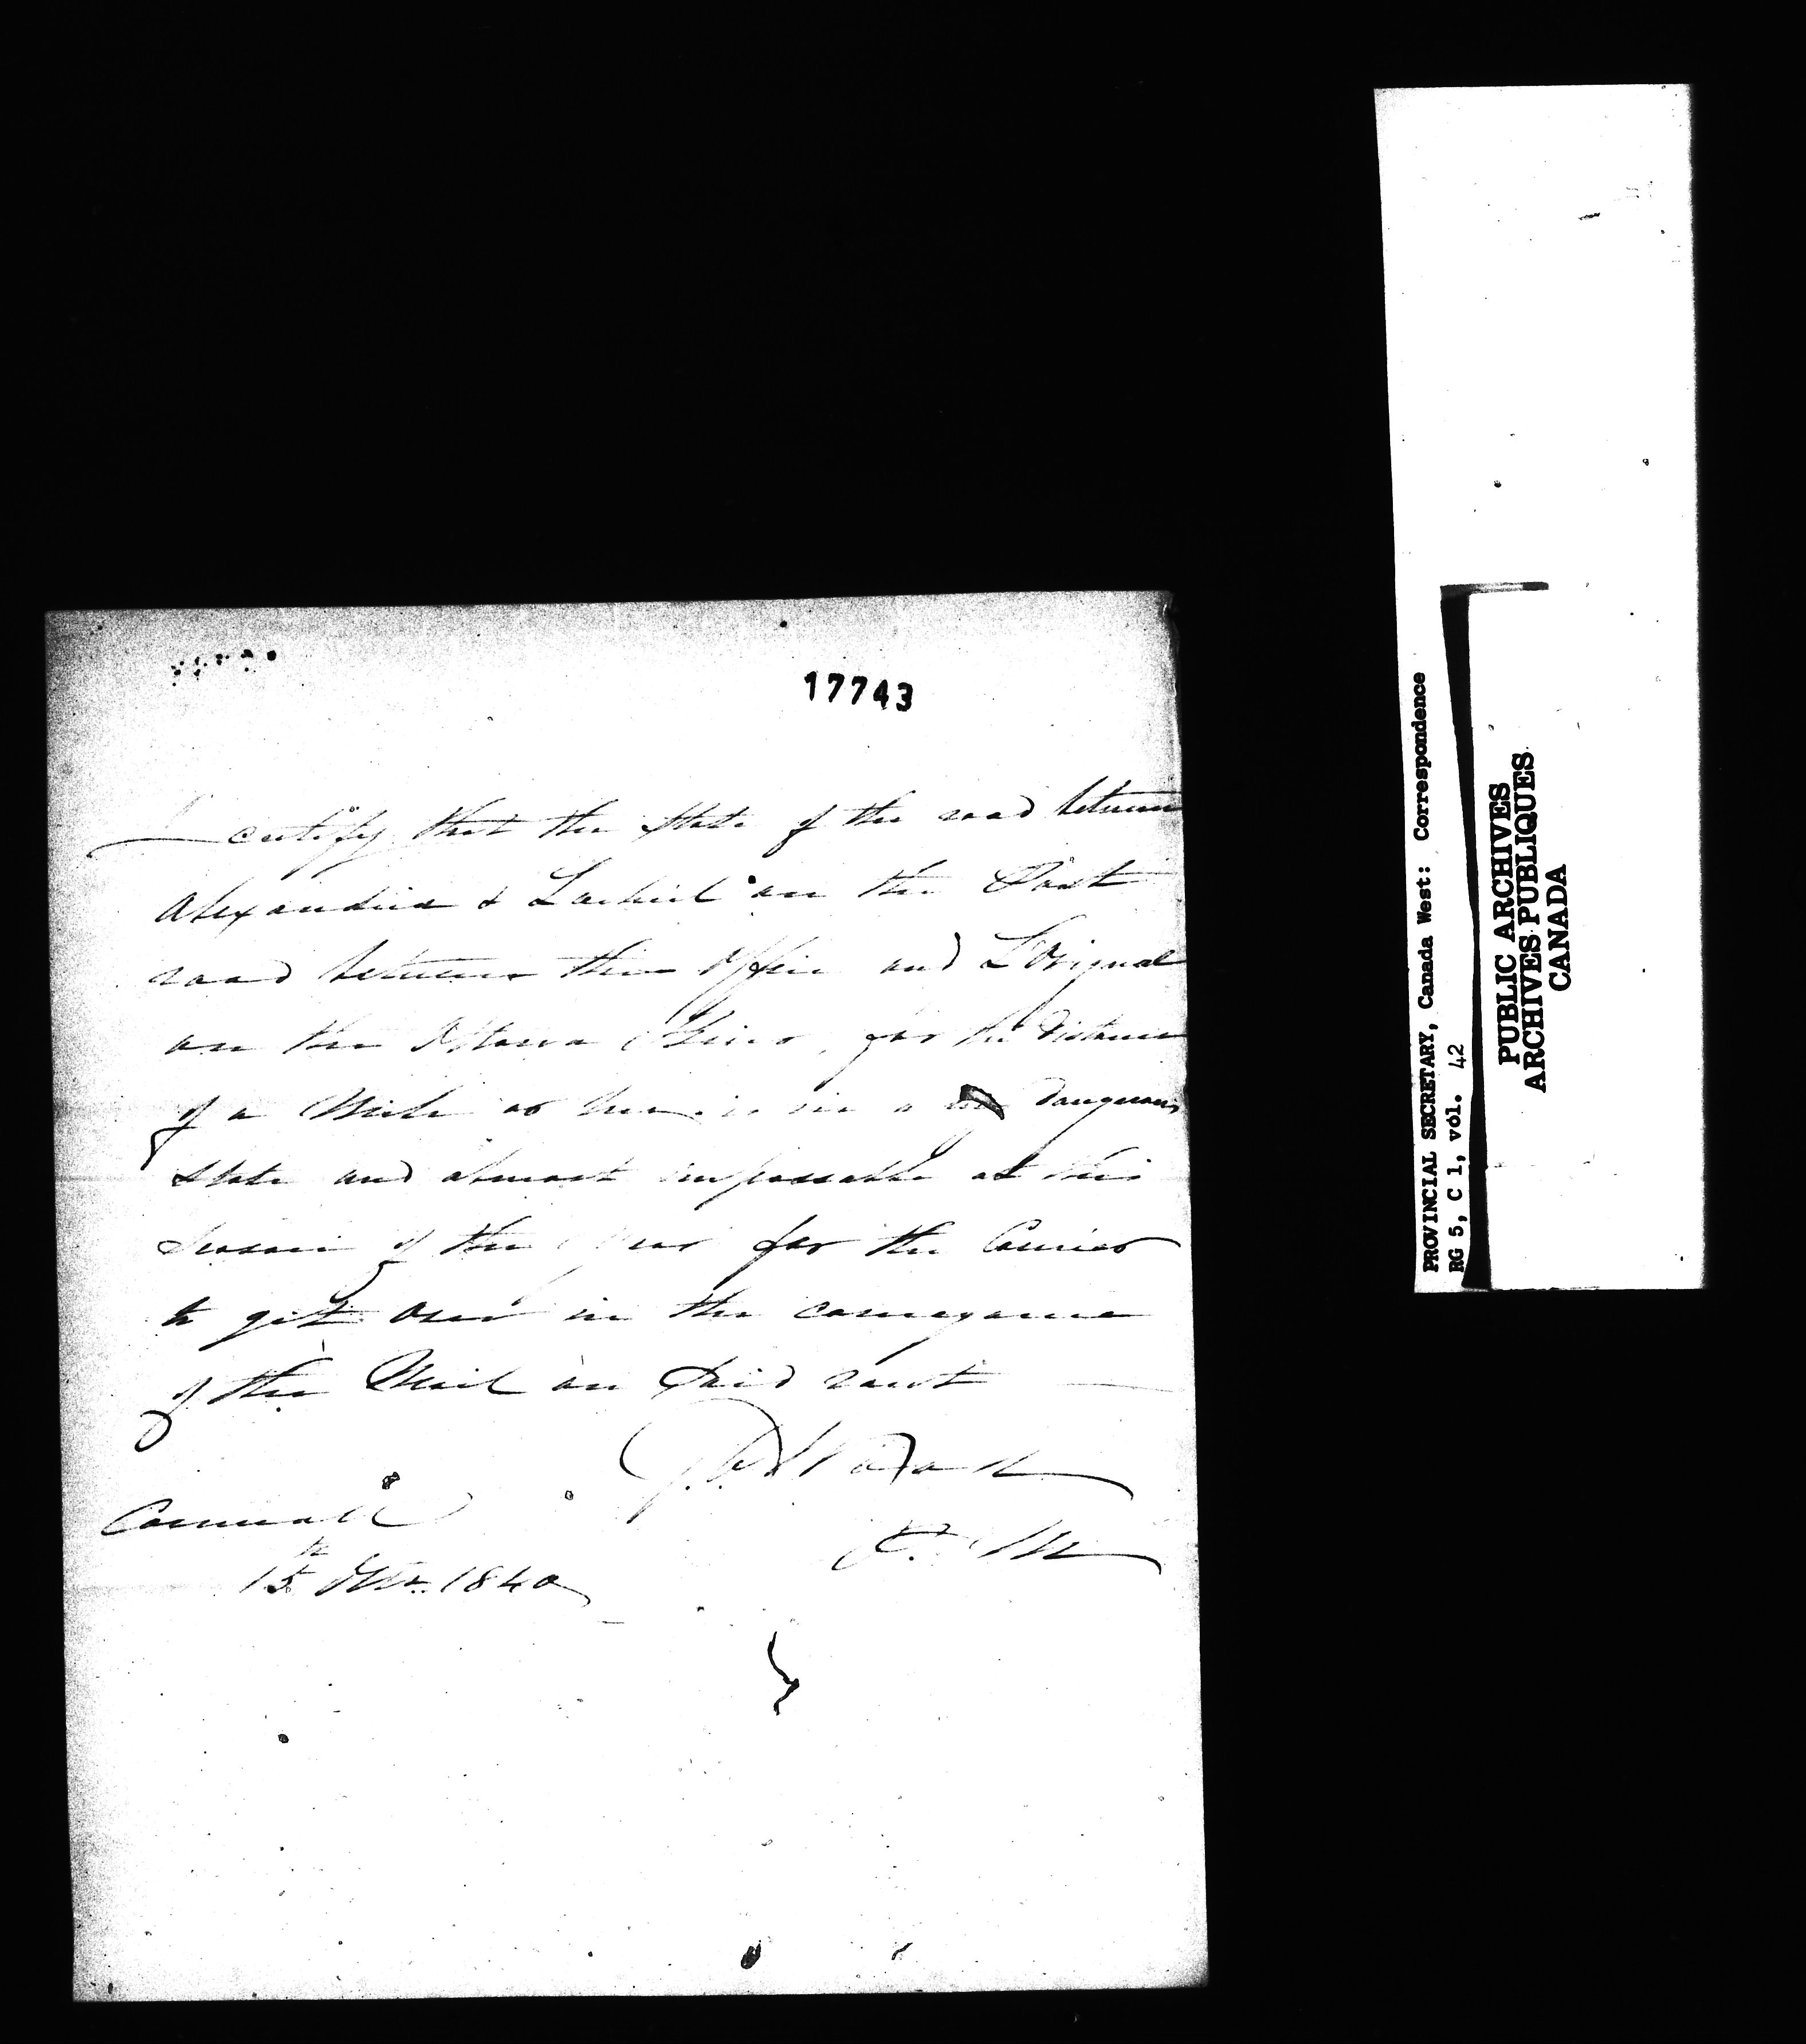 17743
I certify that the State of the road between
Alexandria & Lochiel on the Post
road between this Office and L'Orignal
on the Ottawa River, for the distance
of a Mile or two is in a dangerous
state and almost impassable at this
Season of the Year for the Courier
to get over in the conveyance
of the Mail on said rout
P. M
Cornwall
15th 1840
PROVINCIAL SECRETARY, Canada West: Correspondence
RG 5, C 1, vol. 42
PUBLIC ARCHIVES
ARCHIVES PUBLIQUES
CANADA